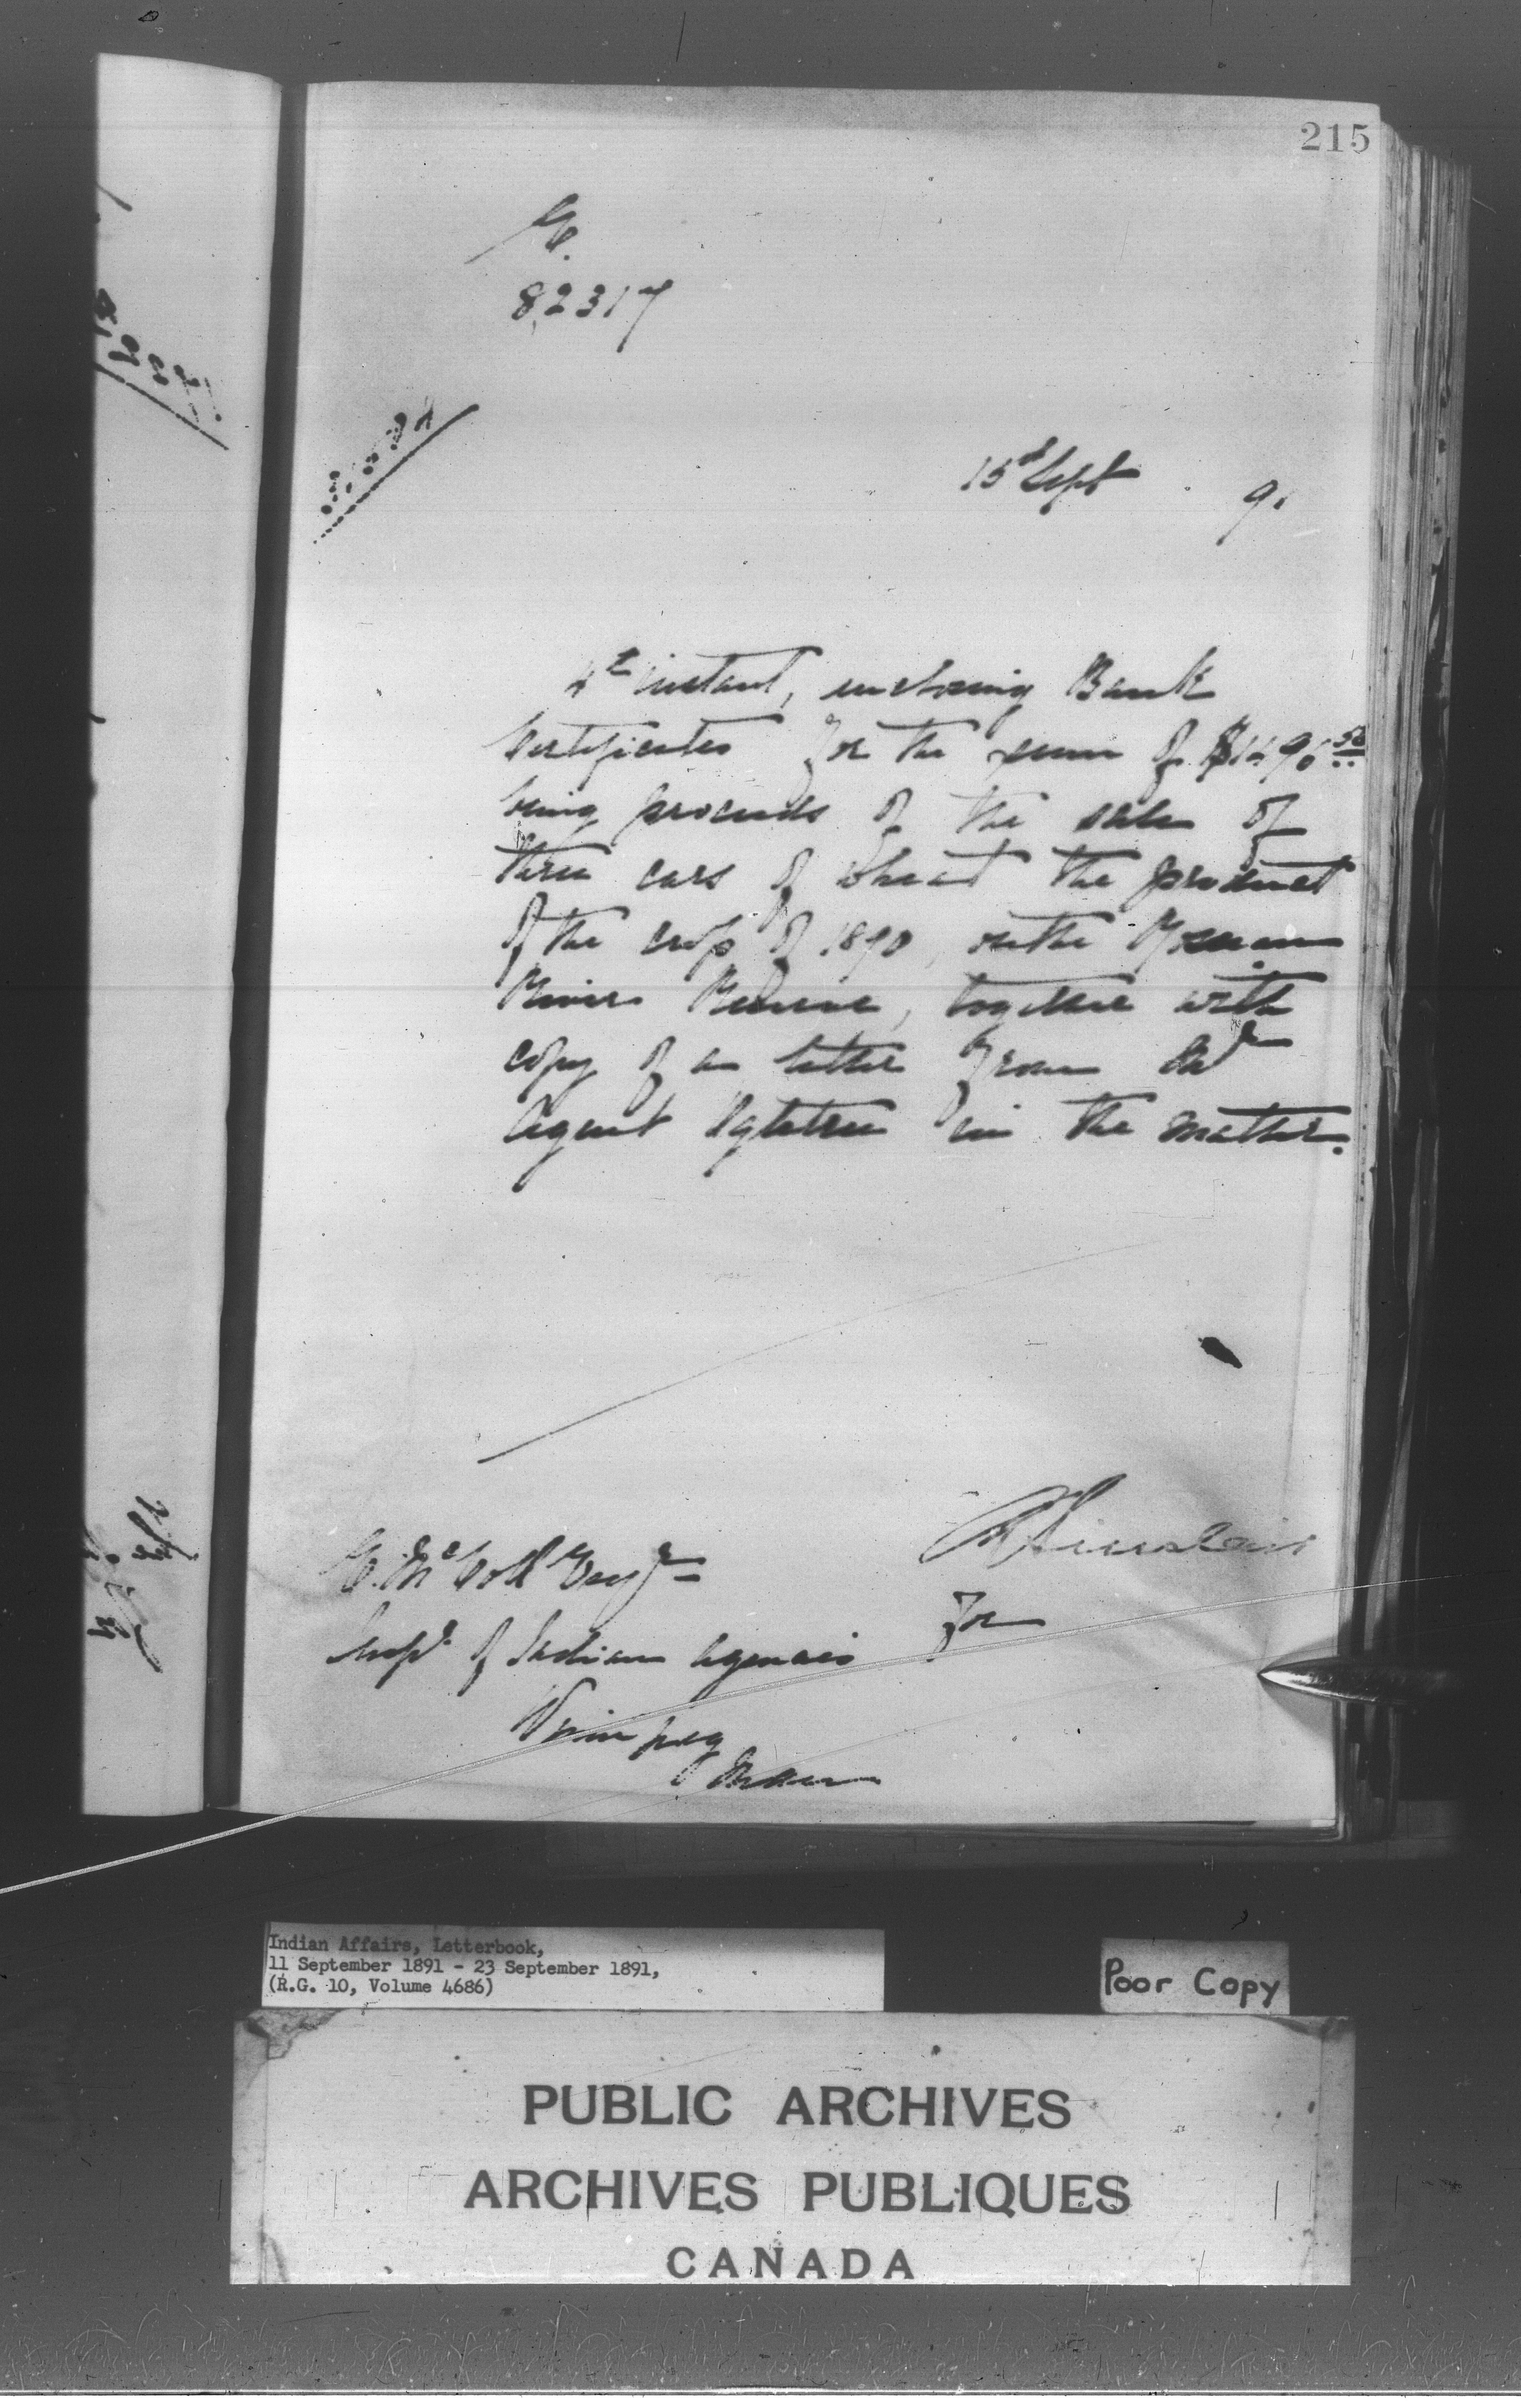 215
82317
15th Sept 91
4th instant, enclosing Bank
Certificates for the sum of
being proceeds of the sale of
three cars of wheat the product
of the crop of 1890, on the
River Reserve, together with
copy of a letter from
Agent Ogletree in the matter.
E. McColl Esqre
Inspr of Indian Agencies
for
Winnipeg
Man
Indian Affairs, Letterbook,
11 September 1891 - 23 September 1891,
(R.G. 10, Volume 4686)
Poor Copy
PUBLIC ARCHIVES
ARCHIVES PUBLIQUES
CANADA